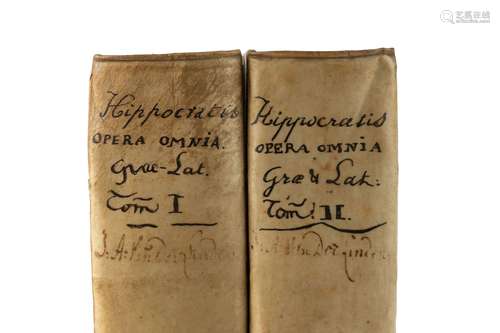 Hippocratis
OPERA OMNIA.
Græ-Lat.
Tom̃ I
J. A. Vander Linden
Hippocratis
OPERA OMNIA
Græ & Lat:
Tom̃: II.
J. A. Van Der Linden
艺典中国